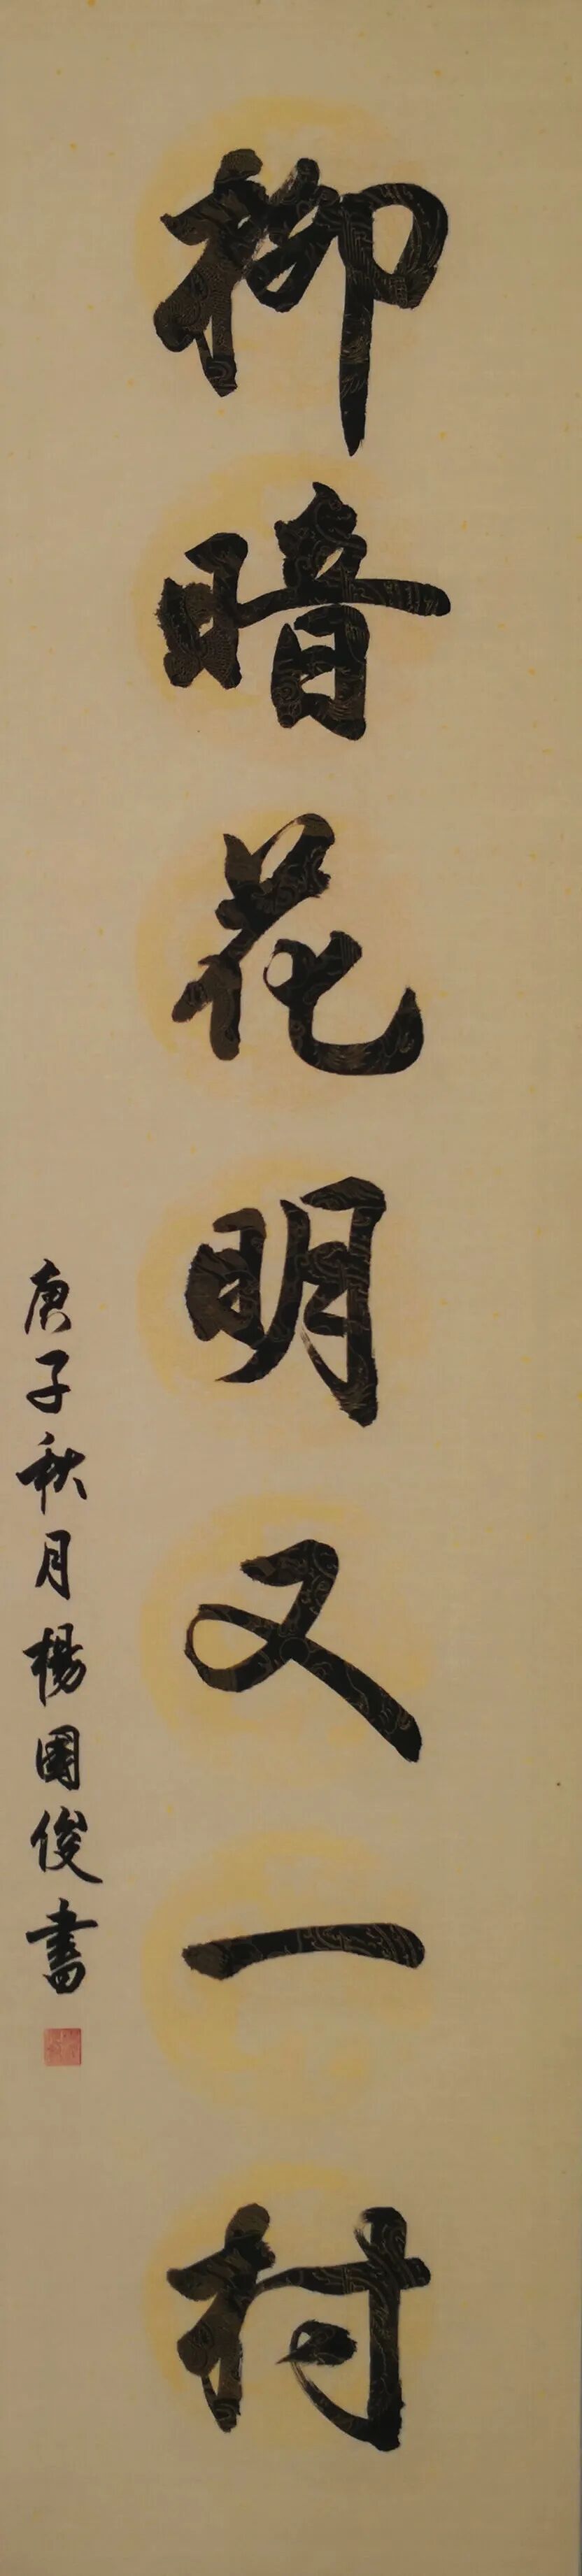 柳暗花明又一村
庚子秋月楊國俊書